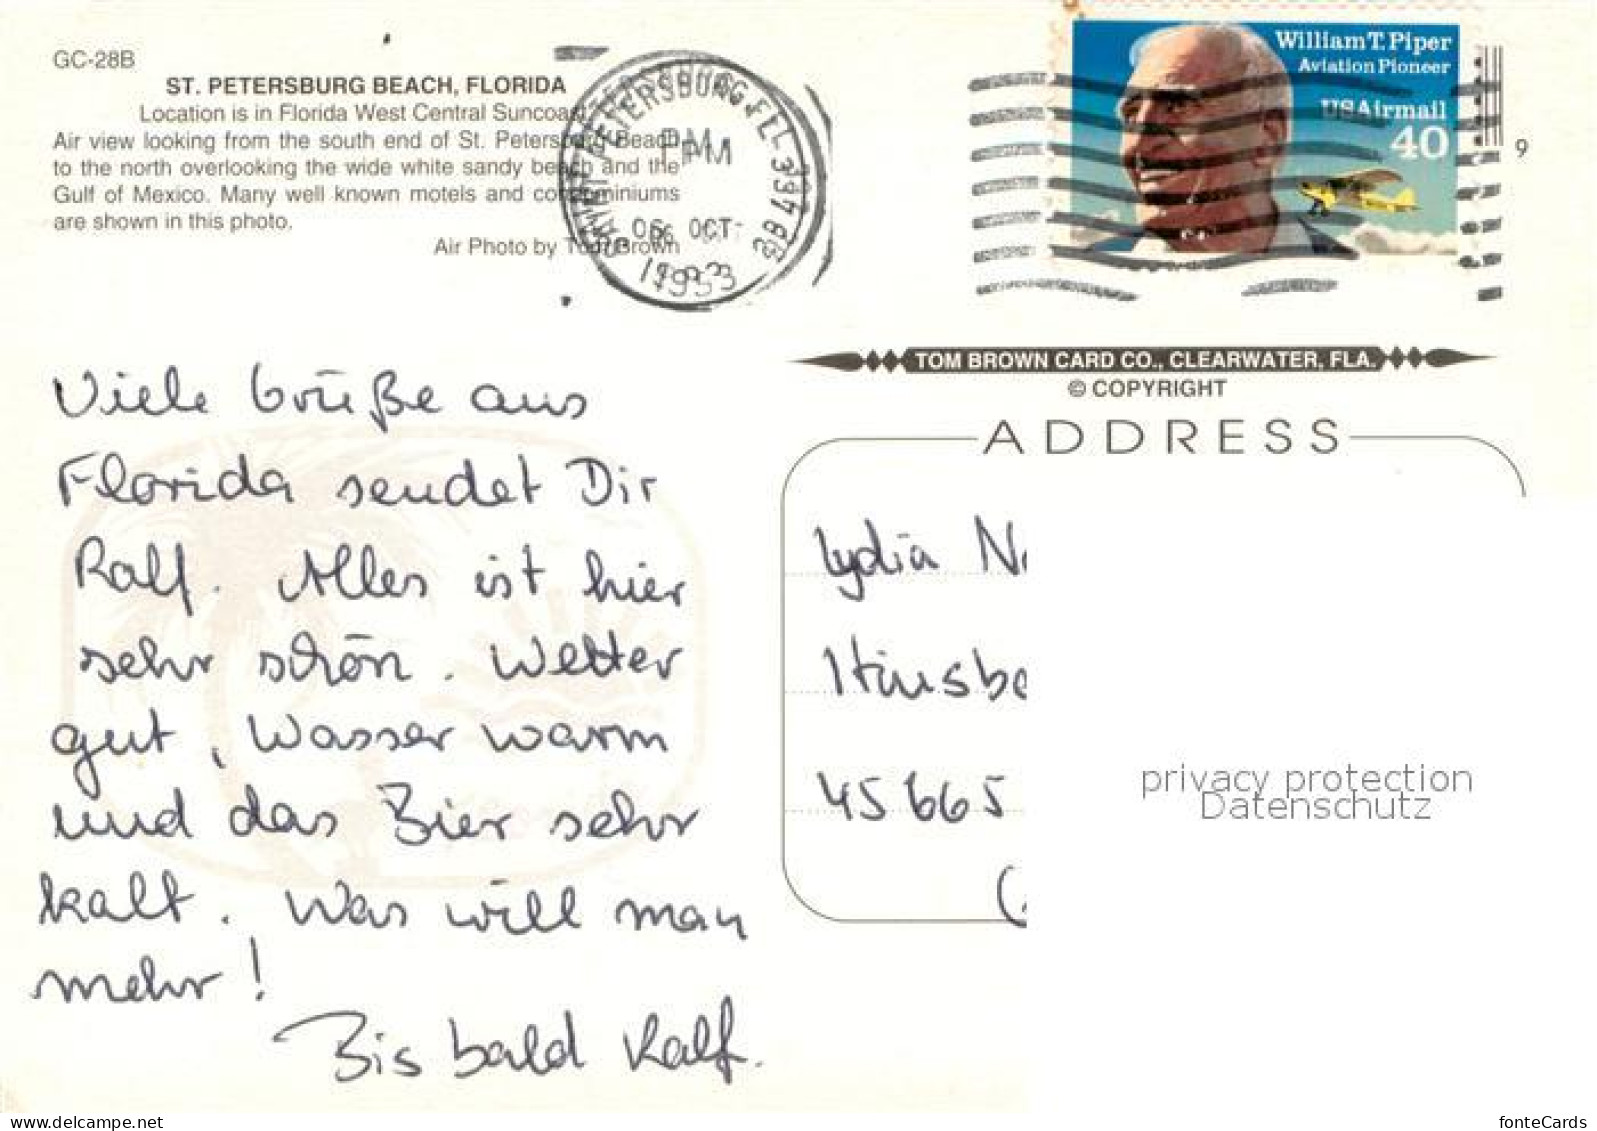 GC-28B
ST. PETERSBURG BEACH, FLORIDA
Location is in Florida West Central Suncoast.
Air view looking from the south end of St. Petersburg Beach
to the north overlooking the wide white sandy beach and the
Gulf of Mexico. Many well known motels and condominiums
are shown in this photo.
Air Photo by Tom Brown
PETERSBURG, FL 337
PM
06 OCT
1993
William T. Piper
Aviation Pioneer
USAirmail
40
9
TOM BROWN CARD CO., CLEARWATER, FLA.
© COPYRIGHT
ADDRESS
Viele Grüße aus
Florida sendet Dir
Ralf. Alles ist hier
sehr schön. Wetter
gut, Wasser warm
und das Bier sehr
kalt. Was will man
mehr!
Bis bald Ralf.
Lydia
45665
privacy protection
Datenschutz
fonteCards